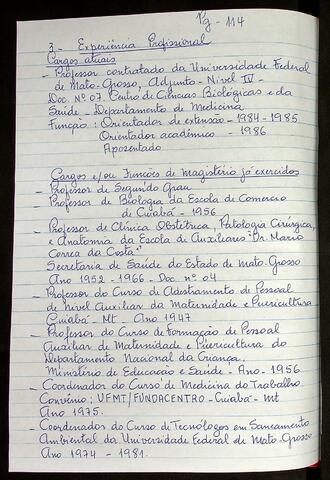 Pg - 114
3 - Experiência Profissional
Cargos atuais
- Professor contratado da Universidade Federal
de Mato-Grosso, Adjunto - Nível IV -
Doc. Nº 07. Centro de Ciências Biológicas e da
Saúde - Departamento de Medicina
Função: Orientador de extensão - 1984-1985
Orientador acadêmico - 1986
Aposentado
Cargos e/ou Funções de magistério já exercidos
- Professor de Segundo Grau
Professor de Biologia da Escola de Comércio
de Cuiabá - 1956
- Professor de Clínica Obstétrica, Patologia Cirúrgica,
e Anatomia da Escola de Auxiliares "Dr. Mario
Correa da Costa"
Secretaria de Saúde do Estado de Mato-Grosso
Ano 1952 - 1966 - Doc nº 04
- Professor do Curso de Adestramento de Pessoal
de Nível Auxiliar da Maternidade e Puericultura
Cuiabá - Mt - Ano 1947
- Professor do Curso de Formação de Pessoal
Auxiliar de Maternidade e Puericultura do
Departamento Nacional da Criança.
Ministério de Educação e Saúde - Ano - 1956
- Coordenador do Curso de Medicina do Trabalho.
Convênio: UFMT/FUNDACENTRO - Cuiabá - Mt
Ano 1975.
- Coordenador do Curso de Tecnólogos em Saneamento
Ambiental da Universidade Federal de Mato-Grosso
Ano 1974 - 1981.